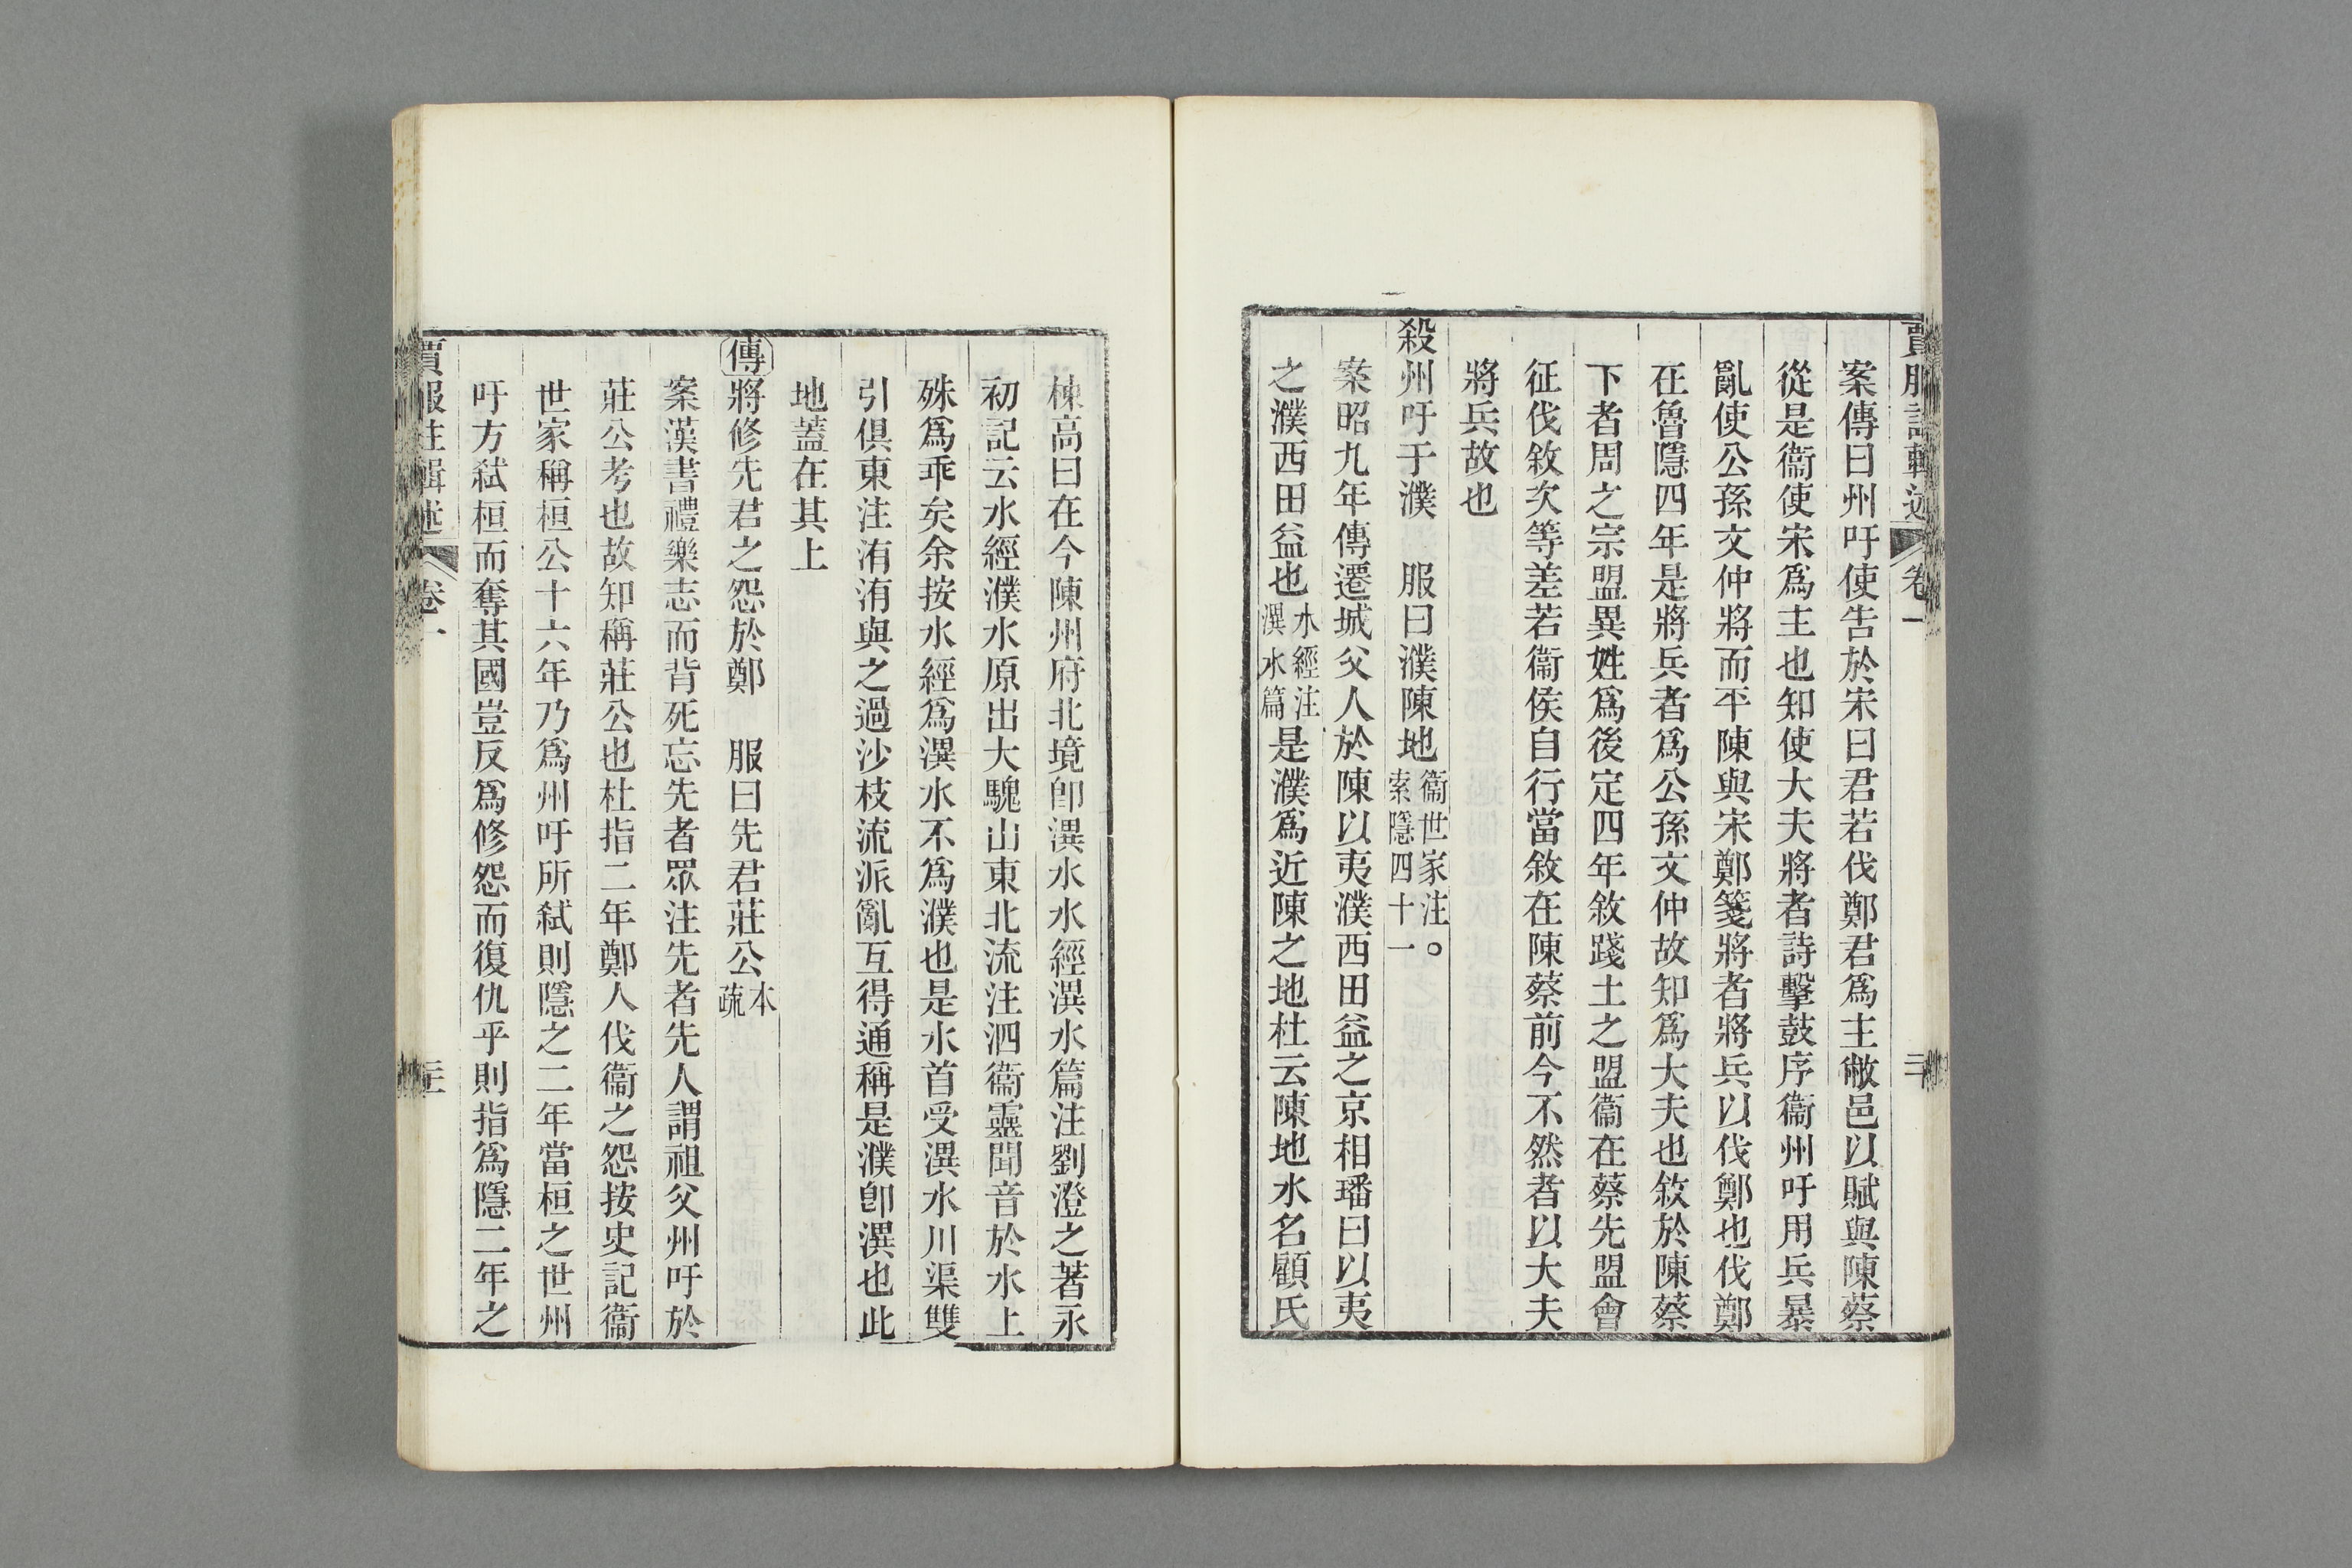 案傳曰州吁使告於宋曰君若伐鄭君爲主敝邑以賦與陳蔡
從是衞使宋爲主也知使大夫將者詩擊鼓序衞州吁用兵暴
亂使公孫文仲將而平陳與宋鄭箋將者將兵以伐鄭也伐鄭
在魯隱四年是將兵者爲公孫文仲故知爲大夫也敘於陳蔡
下者周之宗盟異姓爲後定四年敘踐土之盟衞在蔡先盟會
征伐敘次等差若衞侯自行當敘在陳蔡前今不然者以大夫
將兵故也
殺州吁于濮　服曰濮陳地衞世家注。索隱四十一
案昭九年傳遷城父人於陳以夷濮西田益之京相璠曰以夷
之濮西田益也水經注潩水篇是濮爲近陳之地杜云陳地水名顧氏
棟高曰在今陳州府北境卽潩水水經潩水篇注劉澄之著永
初記云水經濮水原出大騩山東北流注泗衞靈聞音於水上
殊爲乖矣余按水經爲潩水不爲濮也是水首受潩水川渠雙
引俱東注洧洧與之過沙枝流派亂互得通稱是濮卽潩也此
地蓋在其上
傳將修先君之怨於鄭　服曰先君莊公本疏
案漢書禮樂志而背死忘先者眾注先者先人謂祖父州吁於
莊公考也故知稱莊公也杜指二年鄭人伐衞之怨按史記衞
世家稱桓公十六年乃爲州吁所弑則隱之二年當桓之世州
吁方弑桓而奪其國豈反爲修怨而復仇乎則指爲隱二年之
賈服注輯述　卷一